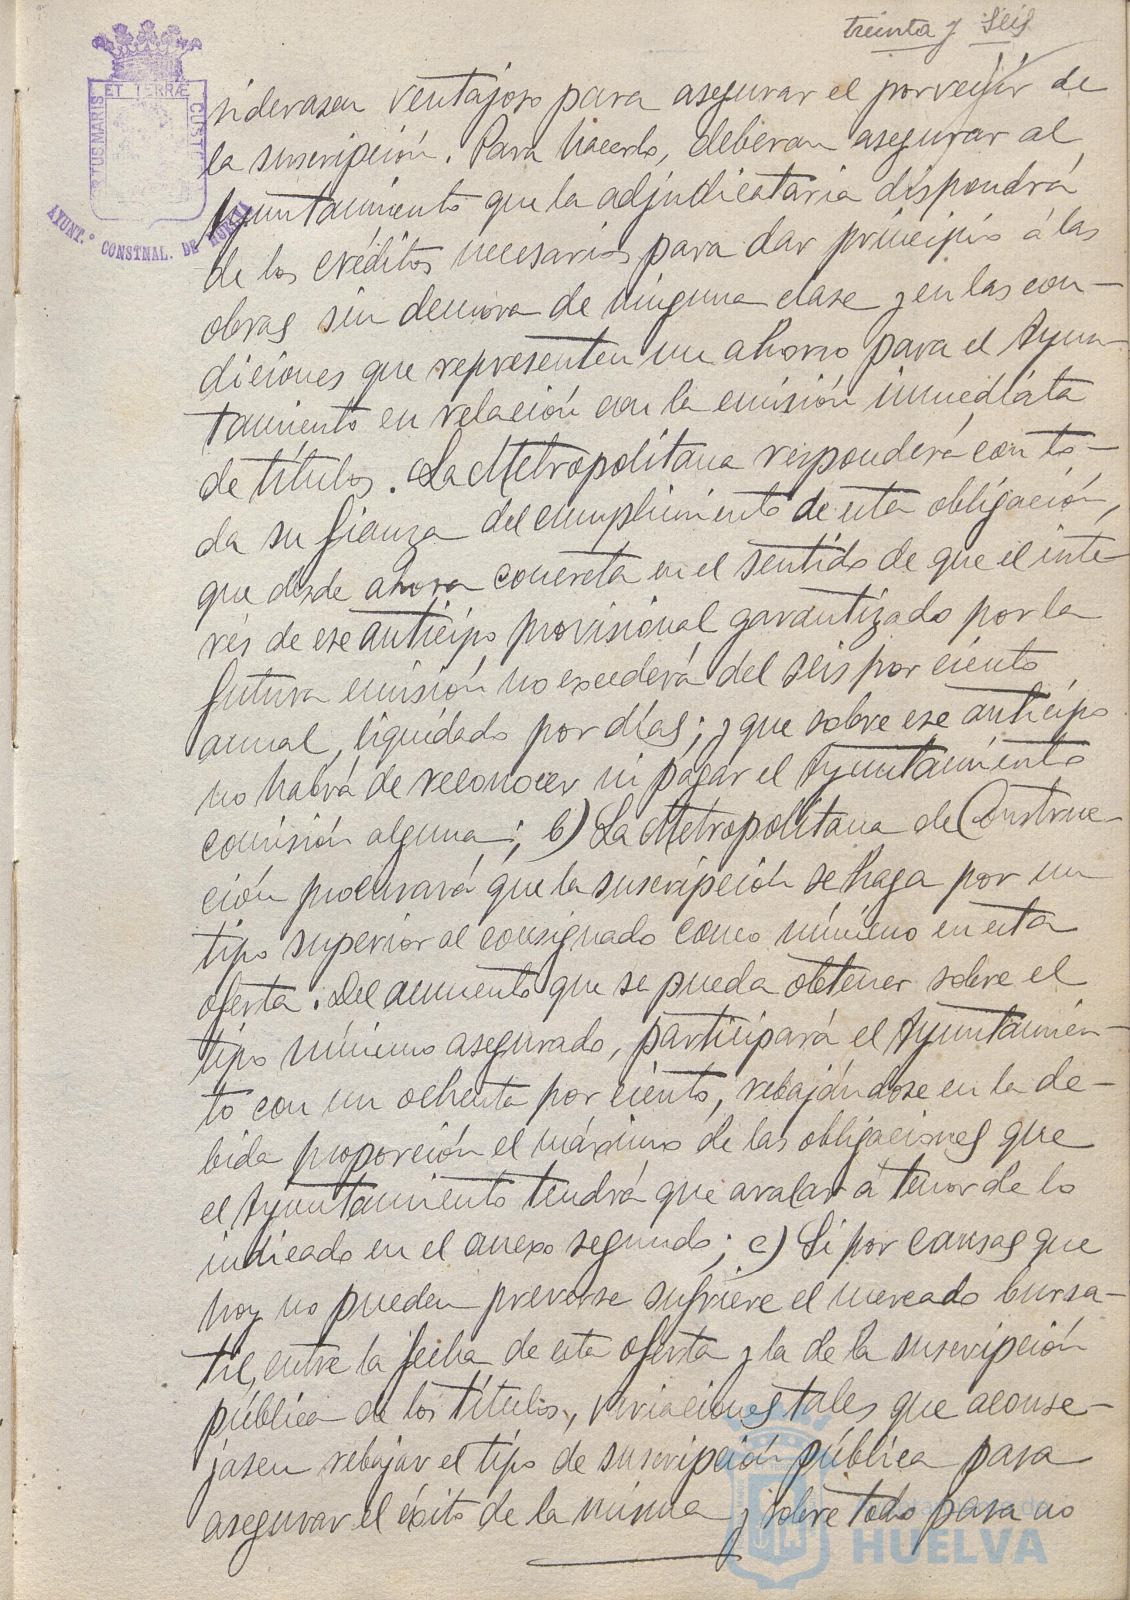 treinta y seis
ET TERRÆ
PORTUS MARIS
CUST
AYUNT.º CONSTNAL. DE HUELVA
siderasen ventajoso para asegurar el porvenir de
la suscripción. Para hacerlo, deberan asegurar al
Ayuntamiento que la adjudicataria dispondrá
de los créditos necesarios para dar principio á las
obras sin demora de ninguna clase y en las con-
diciones que representen un ahorro para el Ayun-
tamiento en relación con la emisión inmediata
de títulos. La Metropolitana responderá con to-
da su fianza del cumplimiento de esta obligación,
que desde ahora concreta en el sentido de que el inte
rés de ese anticipo provisional garantizado por la
futura emisión no excederá del seis por ciento
anual, liquidado por días; y que sobre ese anticipo
no habrá de reconocer ni pagar el Ayuntamiento
comisión alguna; b) La Metropolitana de Construc-
ción procurará que la suscripción se haga por un
tipo superior al consignado como mínimo en esta
oferta. Del aumento que se pueda obtener sobre el
tipo mínimo asegurado, participará el Ayuntamien-
to con un ochenta por ciento, rebajándose en la de-
bida proporción el máximo de las obligaciones que
el Ayuntamiento tendrá que avalar á tenor de lo
indicado en el anexo segundo; c) Si por causas que
hoy no pueden preverse sufriere el mercado bursa-
til, entre la fecha de esta oferta y la de la suscripción
pública de los títulos, variaciones tales que aconse-
jasen rebajar el tipo de suscripción pública para
asegurar el éxito de la misma y sobre todo para no
HUELVA